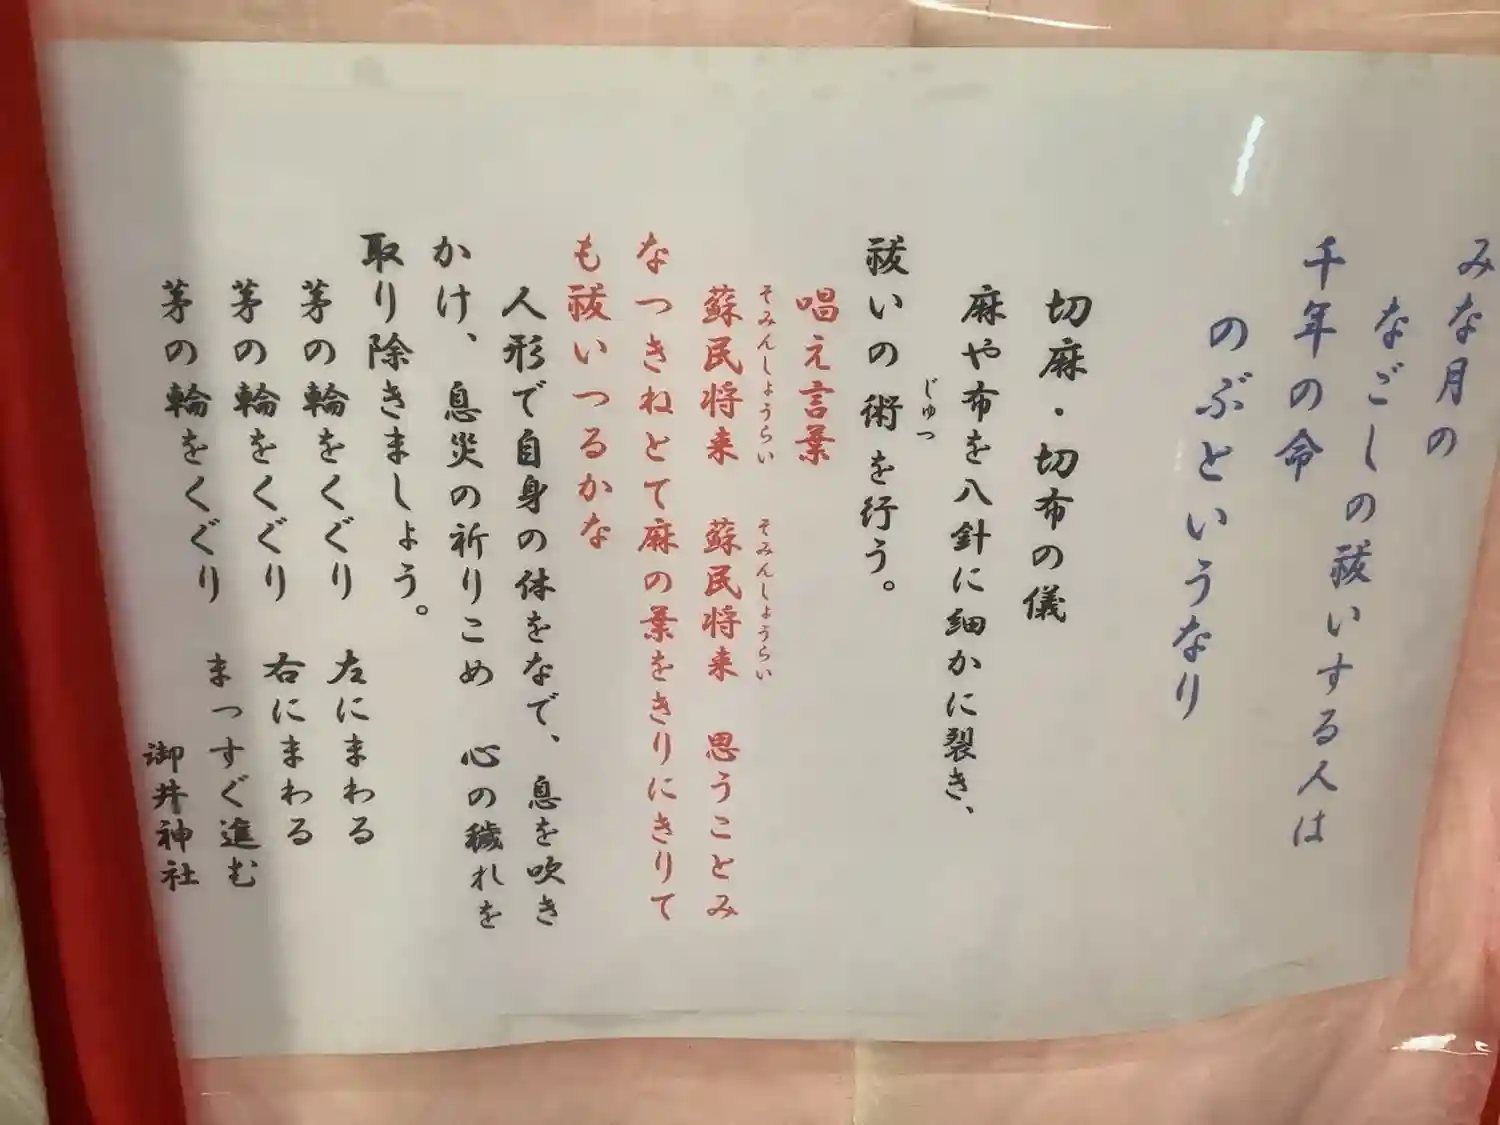 みな月の
なごしの祓いする人は
千年の命
のぶというなり
切麻・切布の儀
麻や布を八針に細かに裂き、
祓いの術を行う。
じゅつ
唱え言葉
蘇民将来 蘇民将来 思うことみ
そみんしょうらい そみんしょうらい
なつきねとて麻の葉をきりにきりて
も祓いつるかな
人形で自身の体をなで、息を吹き
かけ、息災の祈りこめ 心の穢れを
取り除きましょう。
茅の輪をくぐり 左にまわる
茅の輪をくぐり 右にまわる
茅の輪をくぐり まっすぐ進む
御井神社